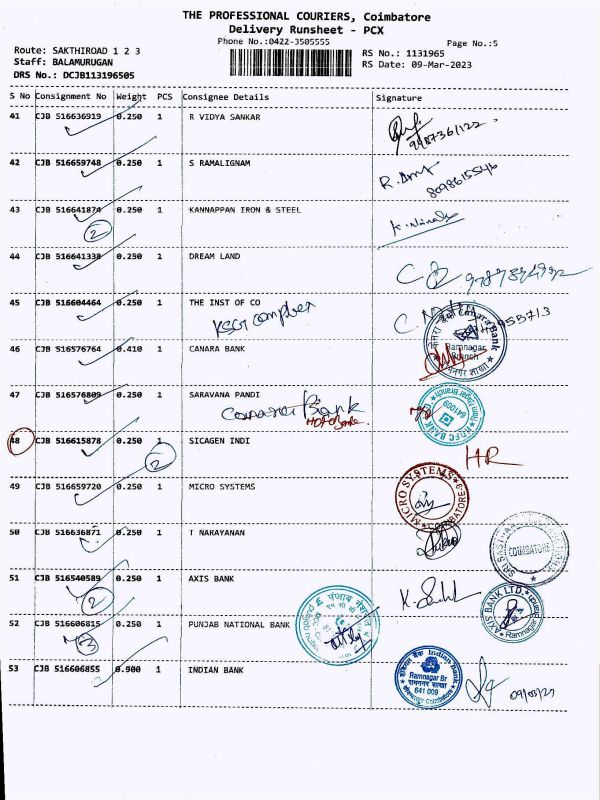 THE PROFESSIONAL COURIERS, Coimbatore
Delivery Runsheet - PCX
Phone No.:0422-3505555
Page No.:5
Route: SAKTHIROAD 1 2 3
Staff: BALAMURUGAN
DRS No.: DCJB113196505
RS No.: 1131965
RS Date: 09-Mar-2023
S No Consignment No Weight PCS Consignee Details Signature
41 CJB 516636919 0.250 1 R VIDYA SANKAR
42 CJB 516659748 0.250 1 S RAMALIGNAM
43 CJB 516641874 0.250 1 KANNAPPAN IRON & STEEL
2
44 CJB 516641338 0.250 1 DREAM LAND
45 CJB 516604464 0.250 1 THE INST OF CO
46 CJB 516576764 0.410 1 CANARA BANK
Canara Bank
Ramnagar
Branch
47 CJB 516576809 0.250 1 SARAVANA PANDI
HDFC BANK
641009
48 CJB 516615878 0.250 1 SICAGEN INDI
2
HR
49 CJB 516659720 0.250 1 MICRO SYSTEMS
MICRO SYSTEMS
COIMBATORE
50 CJB 516636871 0.250 1 T NARAYANAN
COIMBATORE
51 CJB 516540589 0.250 1 AXIS BANK
2
AXIS BANK LTD.
Ramnagar
52 CJB 516606815 0.250 1 PUNJAB NATIONAL BANK
3
53 CJB 516606855 0.900 1 INDIAN BANK
इंडियन बैंक Indian Bank
Ramnagar Br
रामनगर शाखा
641 009
Coimbatore